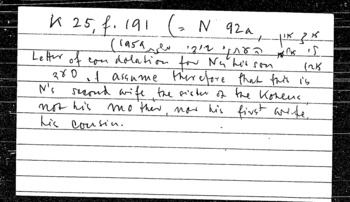 K 25, f. 191 (= N 92a,
Letter of condolation for N's his son
I assume therefore that this is
N's second wife, the sister of the Kohens,
not his mother, nor his first wife,
his cousin.